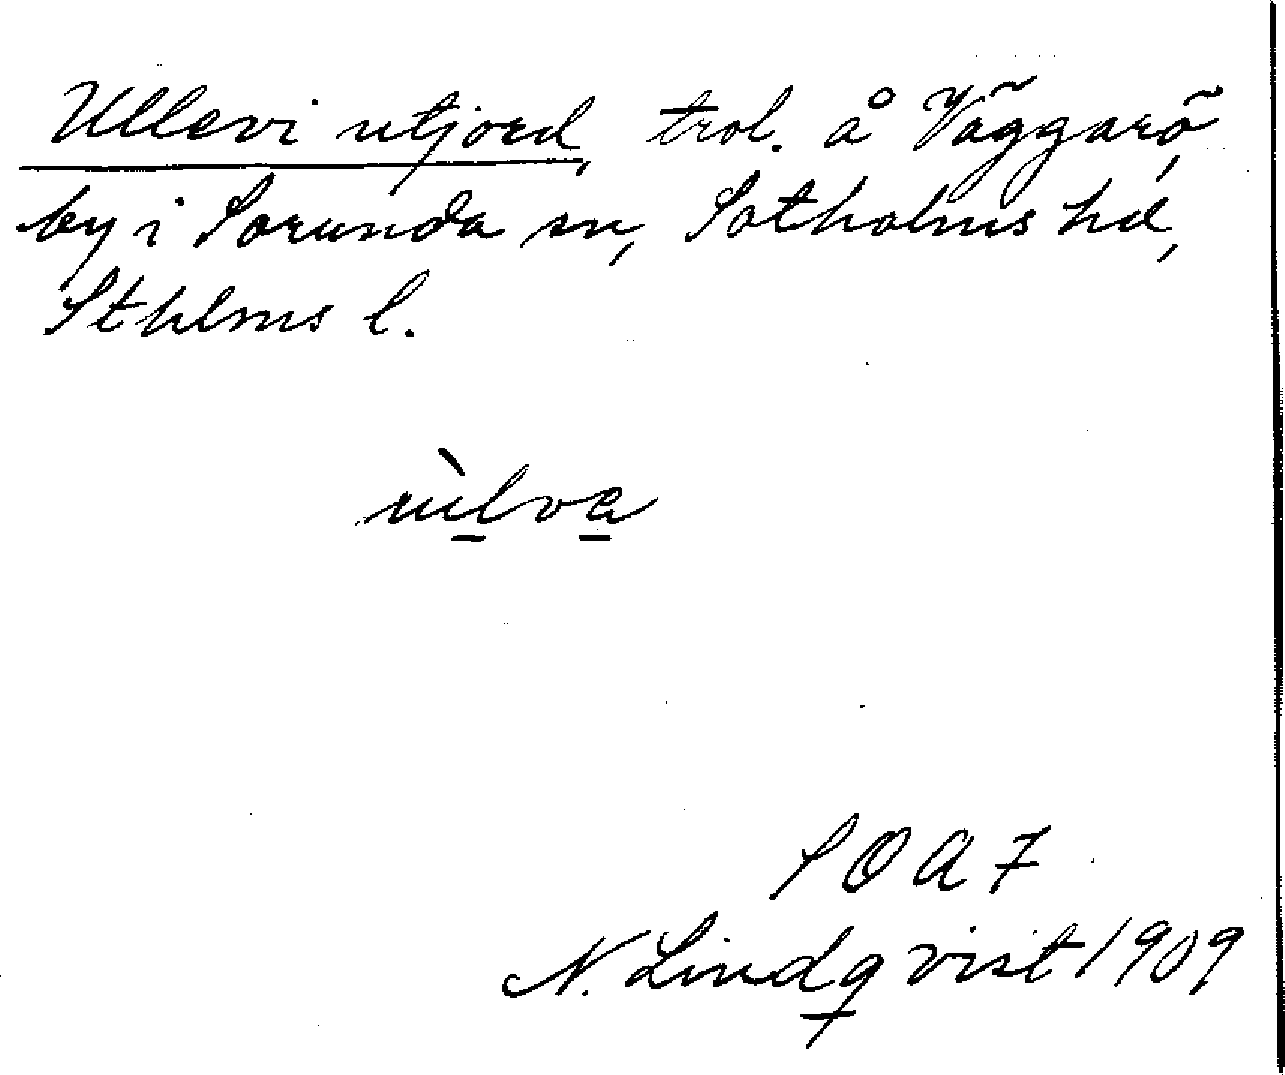 Ullevi utjord, trol. å Väggarö,
by i Sorunda sn, Sotholms hd,
Sthlms l.
ùlva
S O A F
N. Lindqvist 1909